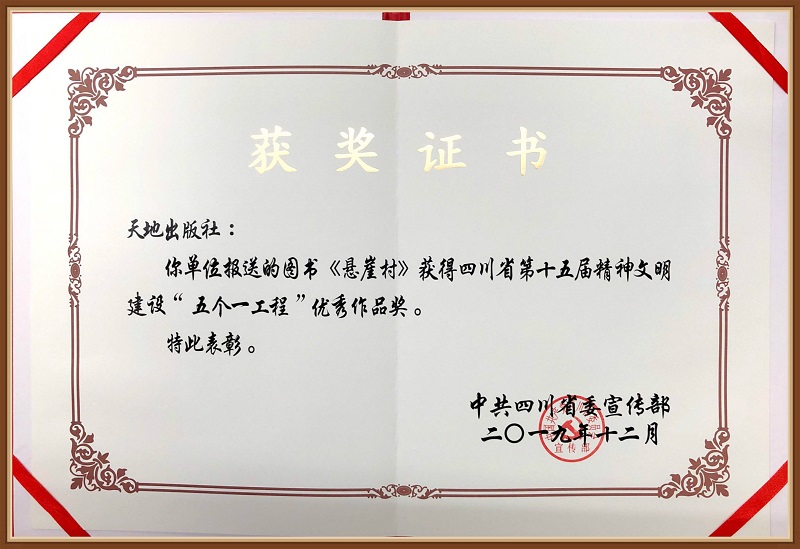 获奖证书
天地出版社：
你单位报送的图书《悬崖村》获得四川省第十五届精神文明
建设“五个一工程”优秀作品奖。
特此表彰。
中共四川省委宣传部
二〇一九年十二月
宣传部